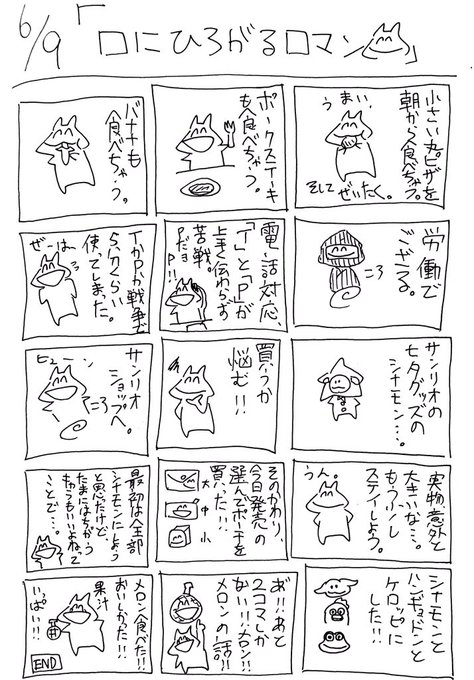 6/9「口にひろがるロマン」
小さい丸ピザを
朝から食べちゃう。
うまい、
そして
ぜいたく。
ポークステーキ
も食べちゃう。
バナナも
食べちゃう。
労働で
ござる。
電話対応、
「T」と「P」が
上手く伝わらず
苦戦。
Pだョ
P!!
TかPか戦争で
5分くらい
使てしまった。
ぜーはー
サンリオの
七タグッズの
シナモン…。
買うか
悩む!!
サンリオ
ショップへ。
ピューン
実物意外と
大きいな…。
もう少し
ステイしよう。
うん。
そのかわり、
今日発売の
選んでポーチを
買った!!
大
中
小
最初は全部
シナモンにしよう
と思たけど、
たまにはちがう
ことで…。
シナモンと
ハンギョドンと
ケロッピに
した!!
あ!!あと
2コマしか
ない!!メロン!!
メロンの話!!
メロン食べた!!
おいしかった!!
果汁
いっぱい!!
END